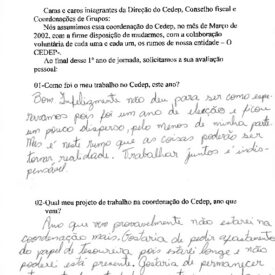 Caras e caros integrantes da Direção do Cedep, Conselho fiscal e
Coordenações de Grupos:
Nós assumimos essa coordenação do Cedep, no mês de Março de
2002, com a firme disposição de mudarmos, com a colaboração
voluntária de cada uma e cada um, os rumos de nossa entidade – O
CEDEP-.
Ao final desse 1º ano de jornada, solicitamos a sua avaliação
pessoal:
01-Como foi o meu trabalho no Cedep, este ano?
Bom Infelizmente não deu para ser como espe-
rávamos pois foi um ano de eleições e ficou
um pouco disperso, pelo menos de minha parte.
Mas é neste rumo que as coisas poderão ser
tornar realidade. Trabalhar juntos é indis-
pensável.
02-Qual meu projeto de trabalho na coordenação do Cedep, ano que
vem?
Ano que vem provavelmente não estarei na
coordenação mais. Gostaria de pedir afastamento
do papel de tesoureira pois estarei longe e não
poderei está presente. Gostaria de permanecer